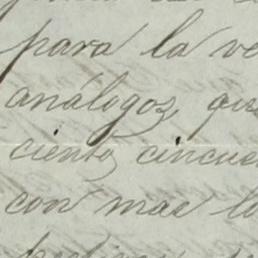 para la ve
análogos, que
ciento cincue
con mas lo